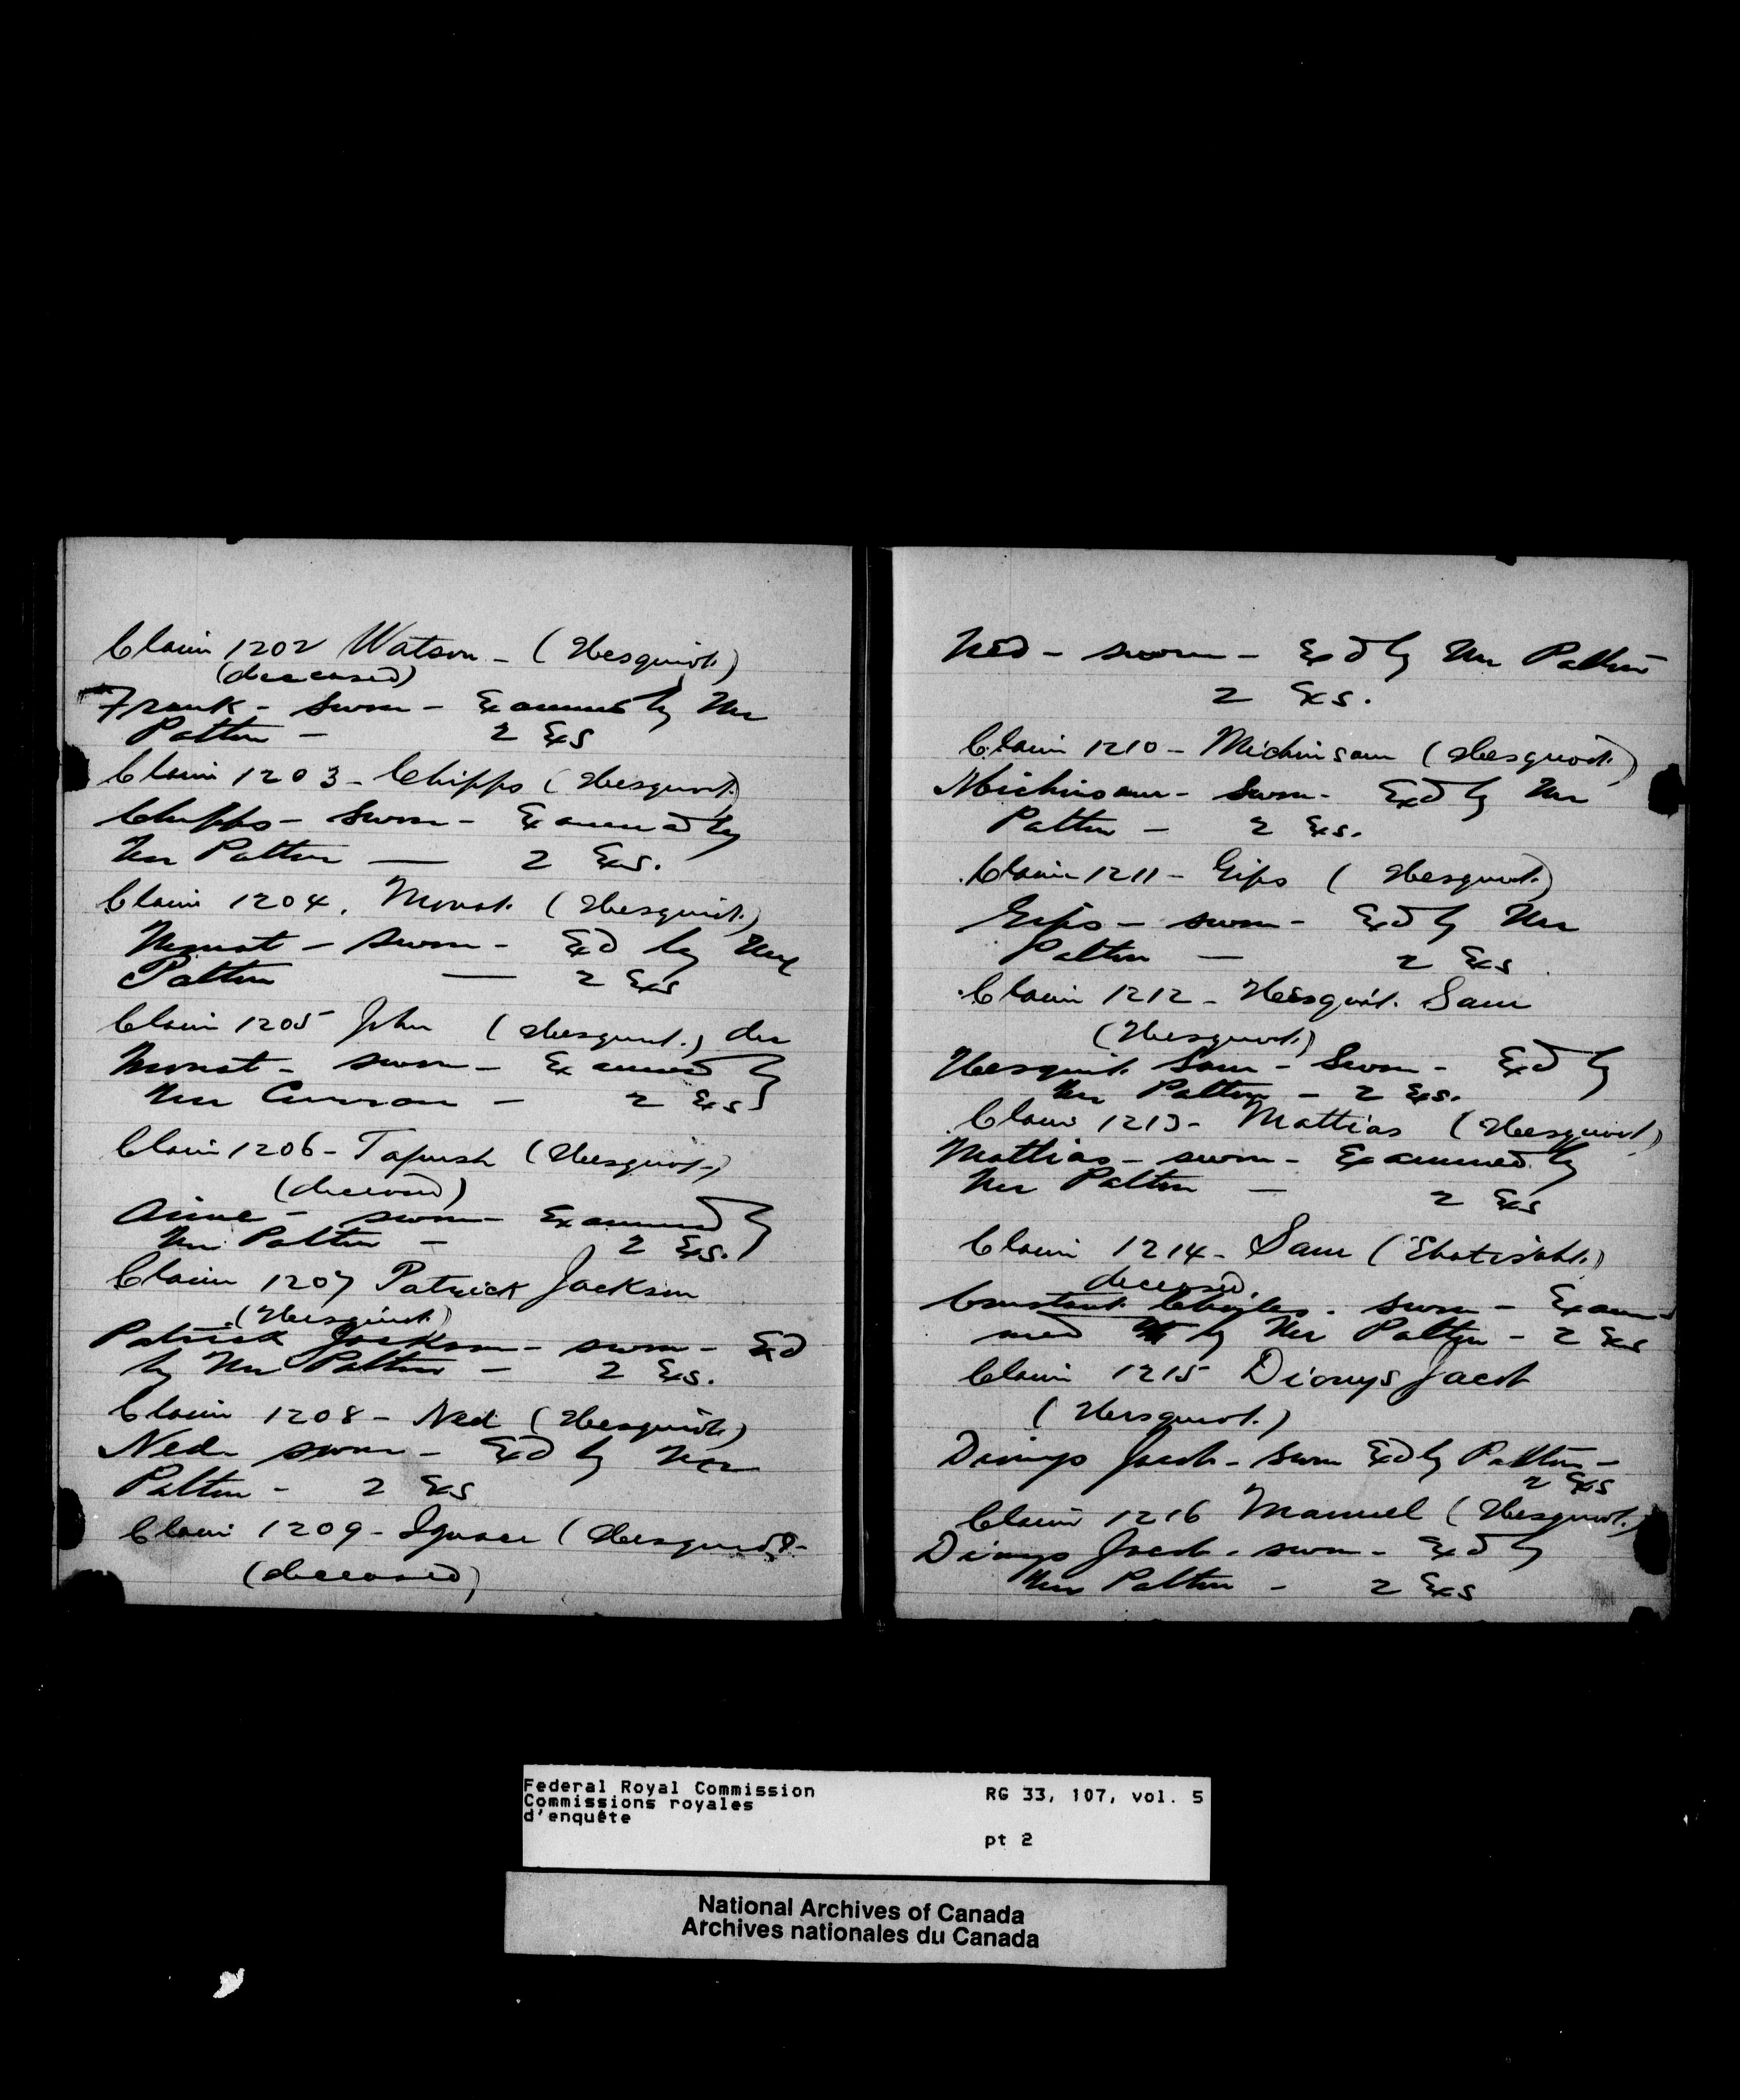 Claim 1202 Watson - (Hesquiot.)
(deceased)
Frank - sworn - Examined by Mr
Patton - 2 Exs
Claim 1203 - Chipps (Hesquiot.)
Chipps - sworn - Examined by
Mr Patton — 2 Exs.
Claim 1204. Monat. (Hesquiot.)
Monat - sworn - Exd by Mr
Patton — 2 Exs
Claim 1205 John (Hesquiot.) dec
Monat - sworn - Examined }
Mr Curran - 2 Exs }
Claim 1206 - Tapush (Hesquiot.)
(deceased)
Aime - sworn - Examined }
Mr Patton - 2 Exs. }
Claim 1207 Patrick Jackson
(Hesquiot.)
Patrick Jackson - sworn - Exd
by Mr Patton - 2 Exs.
Claim 1208 - Ned (Hesquiot.)
Ned - sworn - Exd by Mr
Patton - 2 Exs
Claim 1209 - Ignace (Hesquiot.
(deceased)
Ned - sworn - Exd by Mr Patton
2 Exs.
Claim 1210 - Michinsam (Hesquiot.)
Michinsam - sworn - Exd by Mr
Patton - 2 Exs.
Claim 1211 - Gips (Hesquiot.)
Gips - sworn - Exd by Mr
Patton — 2 Exs.
Claim 1212 - Hesquiot. Sam
(Hesquiot.)
Hesquiot. Sam - Sworn - Exd by
Mr Patton - 2 Exs.
Claim 1213 - Mattias (Hesquiot.)
Mattias - sworn - Examined by
Mr Patton — 2 Exs
Claim 1214 - Sam (Ehatisaht.)
deceased
Constant Charles. sworn - Exam-
ined by Mr Patton - 2 Exs
Claim 1215 Dionys Jacob
(Hesquiot.)
Dionys Jacob - sworn Exd by Patton -
2 Exs
Claim 1216 Manuel (Hesquiot.)
Dionys Jacob - sworn - Exd by
Mr Patton - 2 Exs
Federal Royal Commission RG 33, 107, vol. 5
Commissions royales
d'enquête
pt 2
National Archives of Canada
Archives nationales du Canada